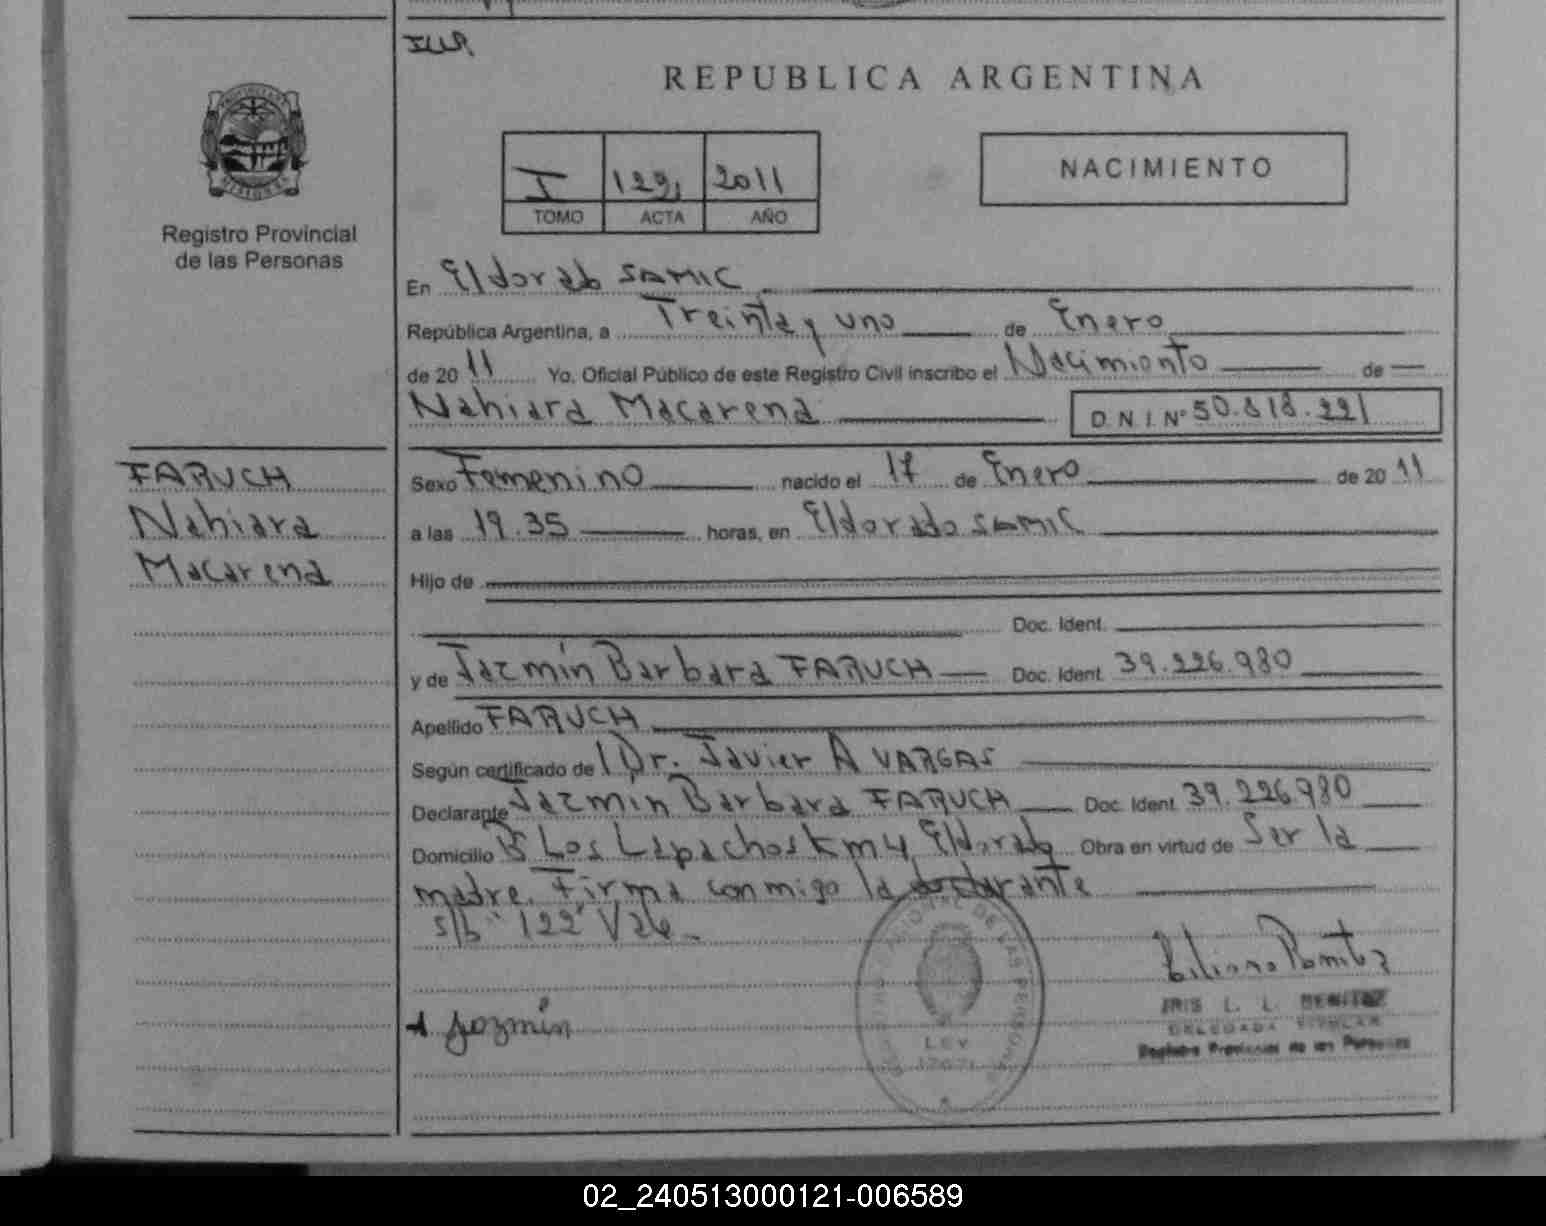 REPUBLICA ARGENTINA
Registro Provincial
de las Personas
I 122 2011
TOMO ACTA AÑO
NACIMIENTO
En Eldorado SAMIC
República Argentina, a Treinta y uno de Enero
de 20 11 Yo, Oficial Público de este Registro Civil inscribo el Nacimiento de
Nahiara Macarena D.N.I. Nº 50.818.221
FARUCH
Nahiara
Macarena
Sexo Femenino nacido el 17 de Enero de 20 11
a las 19.35 horas, en Eldorado SAMIC
Hijo de
Doc. Ident.
y de Jazmín Barbara FARUCH Doc. Ident. 39.226.980
Apellido FARUCH
Según certificado de Dr. Javier A VARGAS
Declarante Jazmín Barbara FARUCH Doc. Ident. 39.226.980
Domicilio Bº Los Lapachos Km 4 Eldorado Obra en virtud de Ser la
madre. Firma conmigo la declarante
s/b "122" V/26
Jazmín
REGISTRO NACIONAL DE LAS PERSONAS
LEY
17671
IRIS L. L. BENITEZ
DELEGADA TITULAR
Registro Provincial de las Personas
02_240513000121-006589